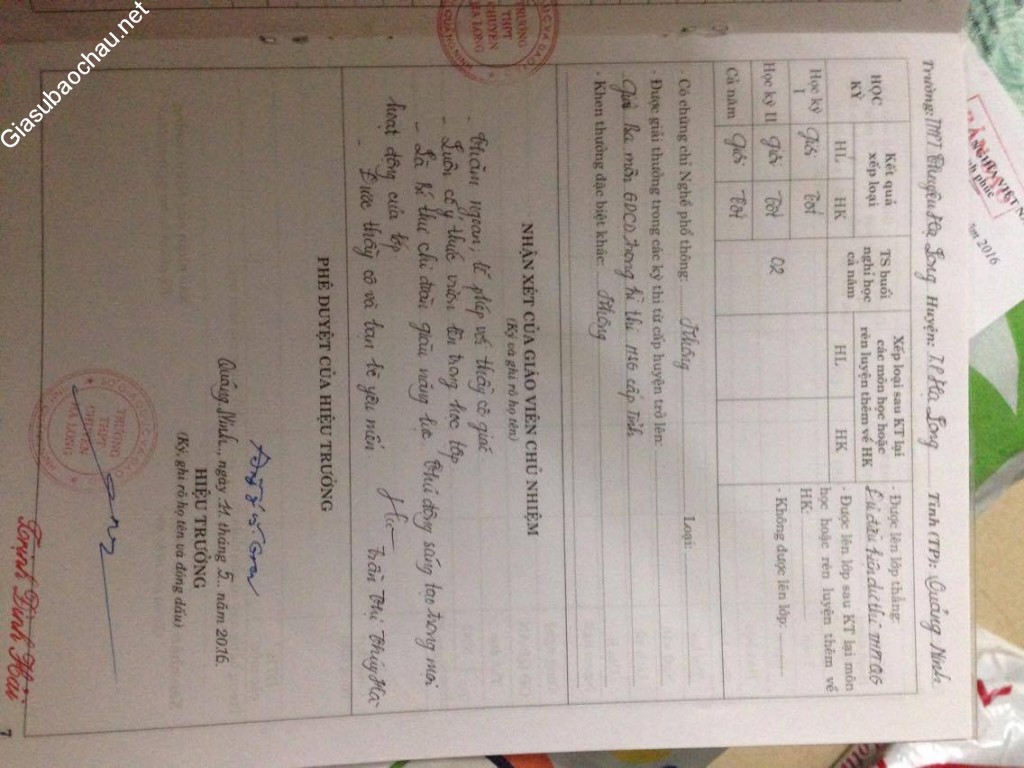 Giasubaochau.net
Trường: THPT Chuyên Hạ Long Huyện: T.P Hạ Long Tỉnh (TP): Quảng Ninh
HỌC KỲ
Kết quả xếp loại
TS buổi nghỉ học cả năm
Xếp loại sau KT lại các môn học hoặc rèn luyện thêm về HK
HL HK HL HK
Học kỳ I Giỏi Tốt
Học kỳ II Giỏi Tốt 02
Cả năm Giỏi Tốt
- Được lên lớp thẳng:
Đủ điều kiện dự thi THPTQG
- Được lên lớp sau KT lại môn
học hoặc rèn luyện thêm về
HK:
- Không được lên lớp:
- Có chứng chỉ Nghề phổ thông: Không Loại:
- Được giải thưởng trong các kỳ thi từ cấp huyện trở lên:
Giải Ba môn GDCD trong kì thi HSG cấp Tỉnh
- Khen thưởng đặc biệt khác: Không
NHẬN XÉT CỦA GIÁO VIÊN CHỦ NHIỆM
(Ký và ghi rõ họ tên)
- Chăm ngoan, lễ phép với thầy cô giáo.
- Luôn có ý thức vươn lên trong học tập
- Là bí thư chi đoàn giàu năng lực. Chủ động sáng tạo trong mọi
hoạt động của lớp
- Được thầy cô và bạn bè yêu mến.
Trần Thị Thúy Hà
PHÊ DUYỆT CỦA HIỆU TRƯỞNG
Quảng Ninh, ngày 11 tháng 5 năm 2016
HIỆU TRƯỞNG
(Ký, ghi rõ họ tên và đóng dấu)
TRƯỜNG
THPT
CHUYÊN
HẠ LONG
Trịnh Đình Hải
7
TRƯỜNG
THPT
CHUYÊN
HẠ LONG
2016